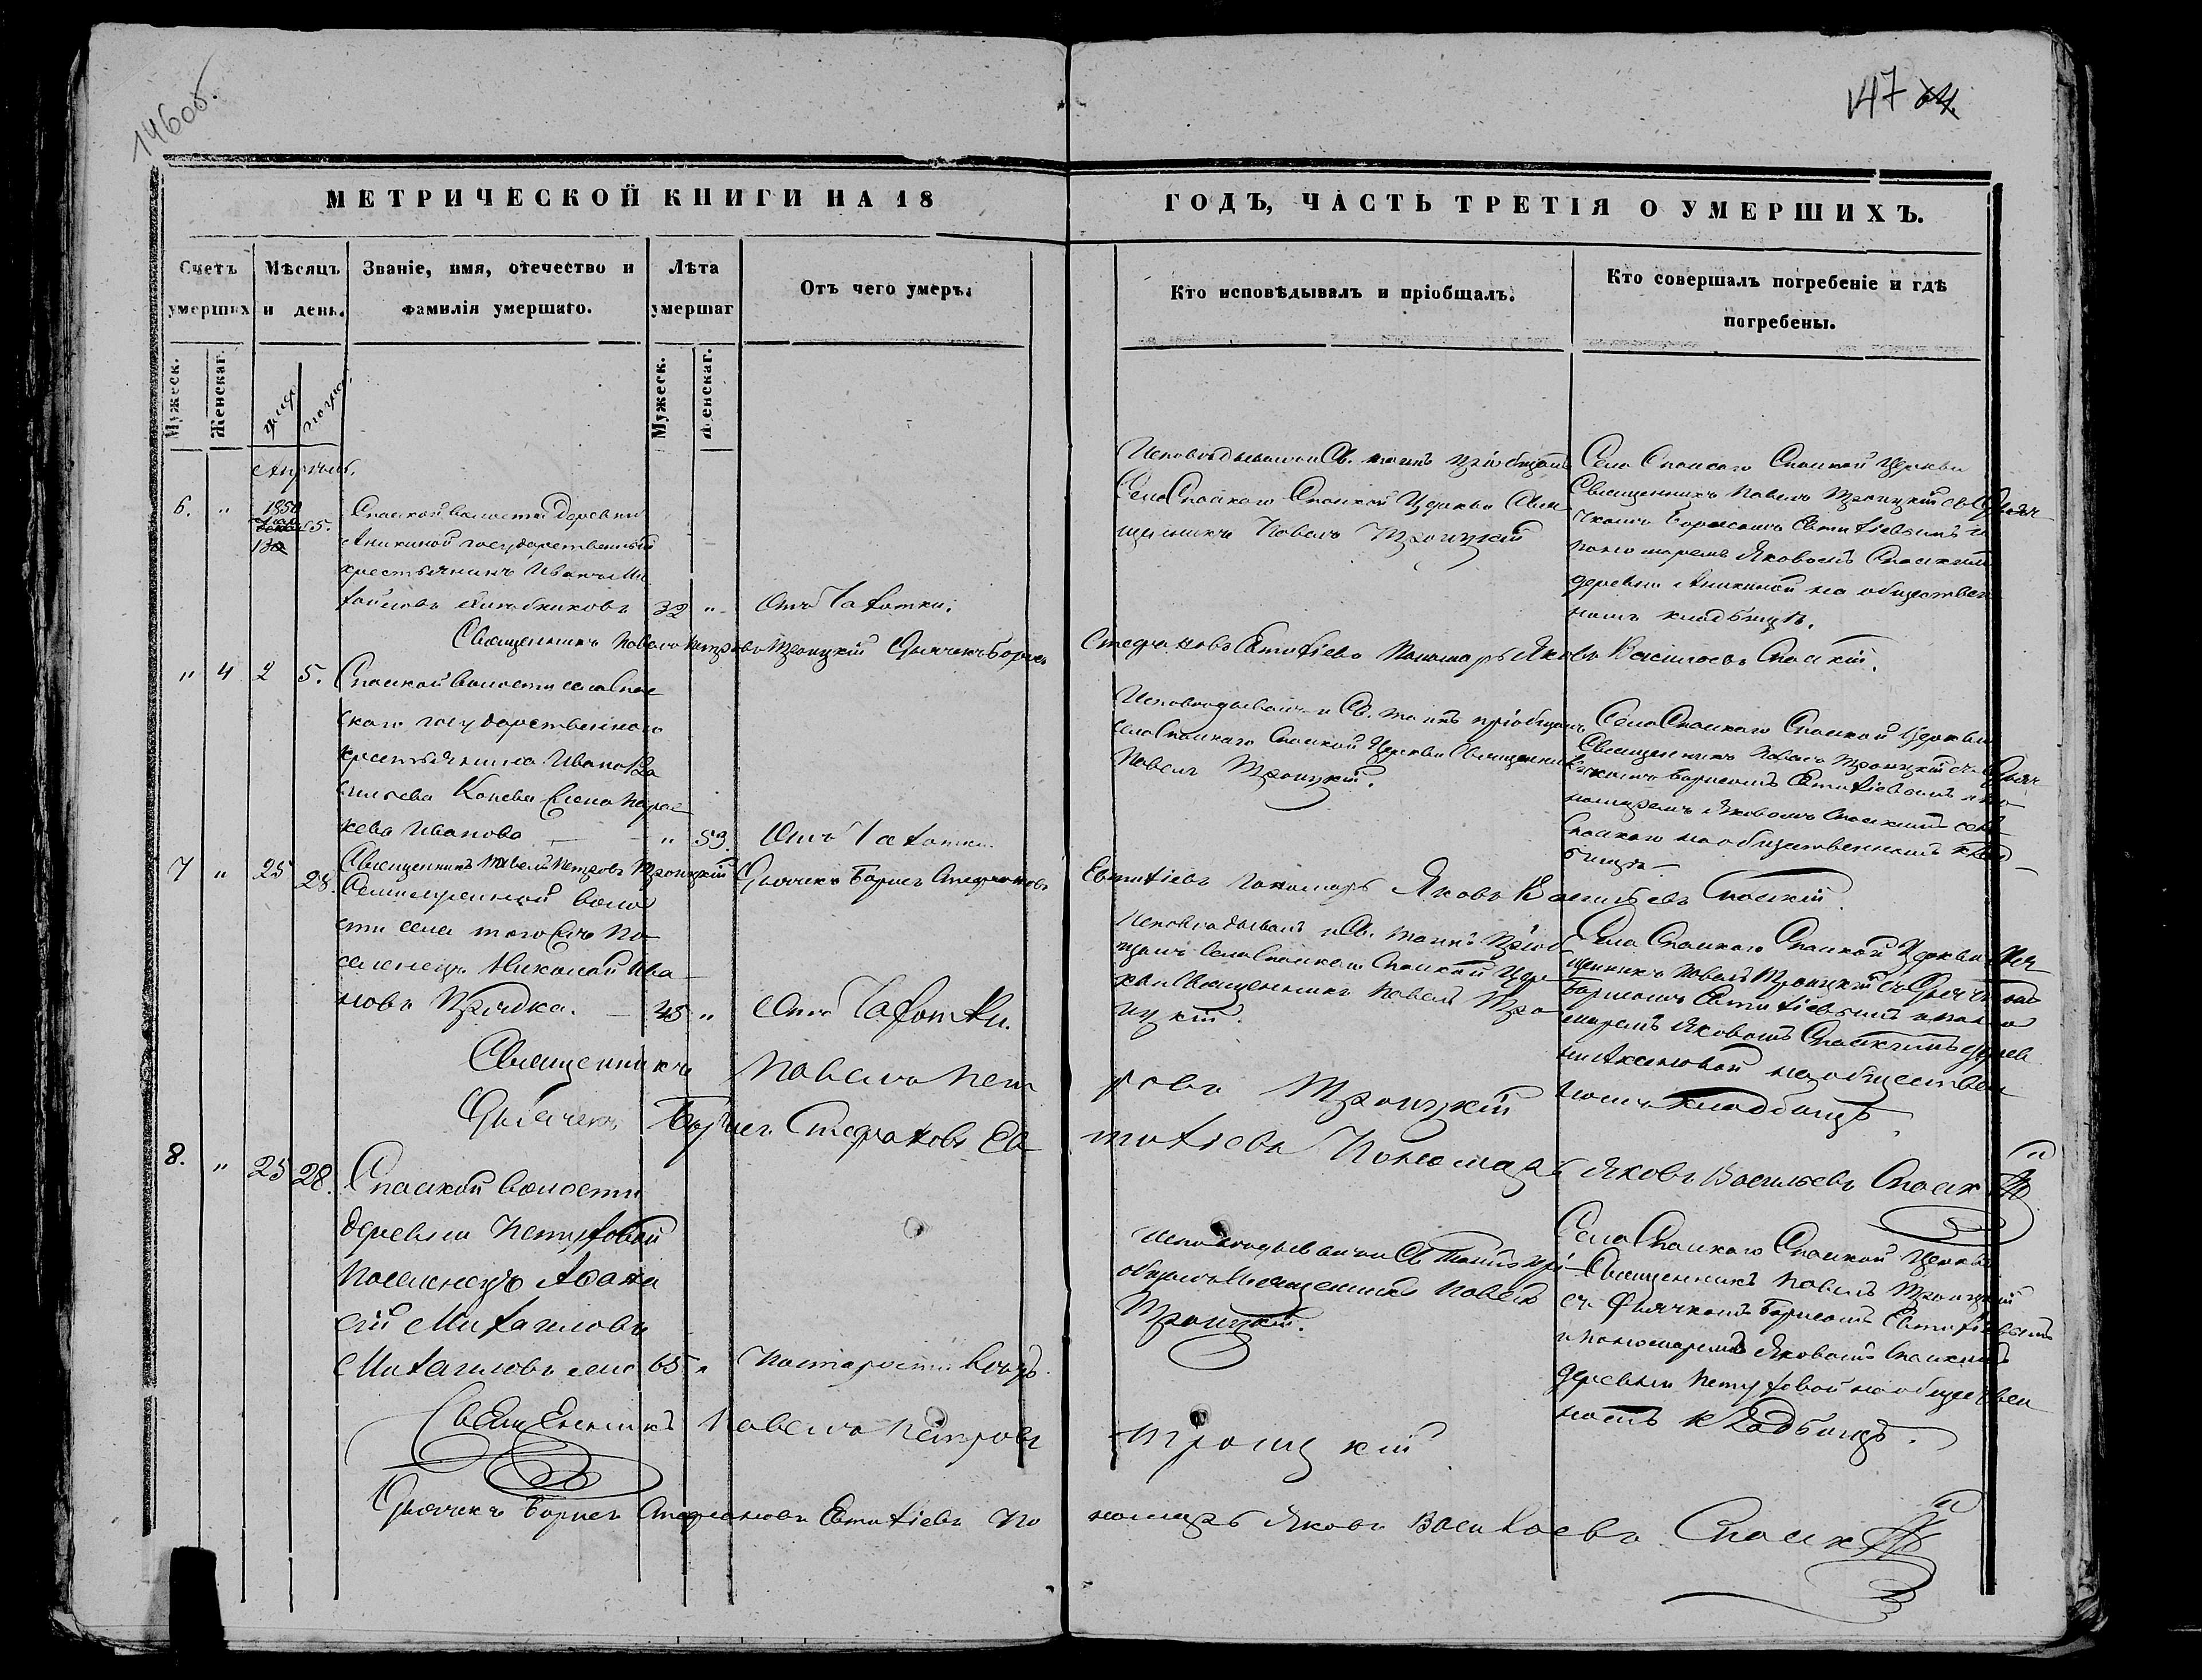 146об.
147 64.
МЕТРИЧЕСКОЙ КНИГИ НА 18
ГОДЪ, ЧАСТЬ ТРЕТІЯ О УМЕРШИХЪ.
Счетъ умершихъ
Мѣсяцъ и день.
Званіе, имя, отечество и фамилія умершаго.
Лѣта умершаг
Отъ чего умеръ.
Кто исповѣдывалъ и пріобщалъ.
Кто совершалъ погребеніе и гдѣ погребены.
Мужеск.
Женскаг.
Мужеск.
Женскаг.
Апрѣль.
6. " 1850
5.
Спаской волости деревни
Аникиной государственный
крестьянинъ Иванъ Ми
хайловъ 32 " Отъ Чахотки.
Исповѣдывалъ и Св. таинъ пріобщалъ
Села Спаскаго Спаской Церкви Свя
щенникъ Павелъ Троицкій
Села Спаскаго Спаской Церкви
Священникъ Павелъ Троицкій съ Дьяч
комъ Борисомъ Евтихіевымъ и
пономаремъ Яковомъ Спаскимъ
деревни Аникиной на обществен
номъ кладбищѣ.
Священникъ Павелъ Петровъ Троицкій Дьячекъ Борисъ Стефановъ Евтихіевъ Пономарь Яковъ Васильевъ Спаскій.
" 4 2 5. Спаской волости села Спас
скаго государственнаго
крестьянина Ивана Ва
сильева Конева жена Парас
кева Иванова " 53. Отъ Чахотки
Исповѣдывалъ и Св. таинъ пріобщалъ
села Спаскаго Спаской Церкви Священникъ
Павелъ Троицкій.
Села Спаскаго Спаской Церкви
Священникъ Павелъ Троицкій съ Дьяч
комъ Борисомъ Евтихіевымъ и по
номаремъ Яковомъ Спаскимъ села
Спаскаго на общественномъ клад
бищѣ.
7 " 25 28.
Священникъ Павелъ Петровъ Троицкій Дьячекъ Борисъ Стефановъ Евтихіевъ пономарь Яковъ Васильевъ Спаскій
воло
сти села того же по
селенецъ Николай Ива
новъ Прядка. 45 " Отъ Чахотки.
Исповѣдывалъ и Св. таинъ пріоб
щалъ села Спаскаго Спаской Цер
кви Священникъ Павелъ Тро
ицкій.
Села Спаскаго Спаской Церкви Свя
щенникъ Павелъ Троицкій съ Дьячкомъ
Борисомъ Евтихіевымъ и поно
маремъ Яковомъ Спаскимъ дерев
ни Аксеновой на обществен
номъ кладбищѣ.
Священникъ Павелъ Петровъ Троицкій
Дьячекъ Борисъ Стефановъ Евтихіевъ Пономарь Яковъ Васильевъ Спаскій
8. " 25 28. Спаской волости
деревни Петуховой
поселенецъ Афана
сій Михаиловъ
Михаиловъ 65 " Отъ старости
Исповѣдывалъ и Св. Таинъ прі
общалъ Священникъ Павелъ
Троицкій.
Села Спаскаго Спаской Церкви
Священникъ Павелъ Троицкій
съ Дьячкомъ Борисомъ Евтихіевымъ
и пономаремъ Яковомъ Спаскимъ
деревни Петуховой на обществен
номъ кладбищѣ.
Священникъ Павелъ Петровъ Троицкій
Дьячекъ Борисъ Стефановъ Евтихіевъ Пономарь Яковъ Васильевъ Спаскій